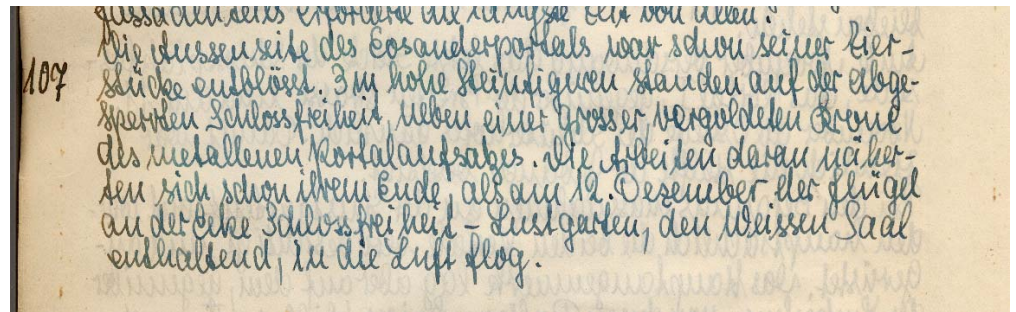 erforderte die längste Zeit von allen.
Die Aussenseite des Eosanderportals war schon seiner Zier-
107 stücke entblösst. 3 m hohe Steinfiguren standen auf der abge-
sperrten Schlossfreiheit, neben einer grosser, vergoldeten Krone
des metallenen Portalaufsatzes. Die Arbeiten daran näher-
ten sich schon ihrem Ende, als am 12. Dezember der Flügel
an der Ecke Schlossfreiheit - Lustgarten, den Weissen Saal
enthaltend, in die Luft flog.